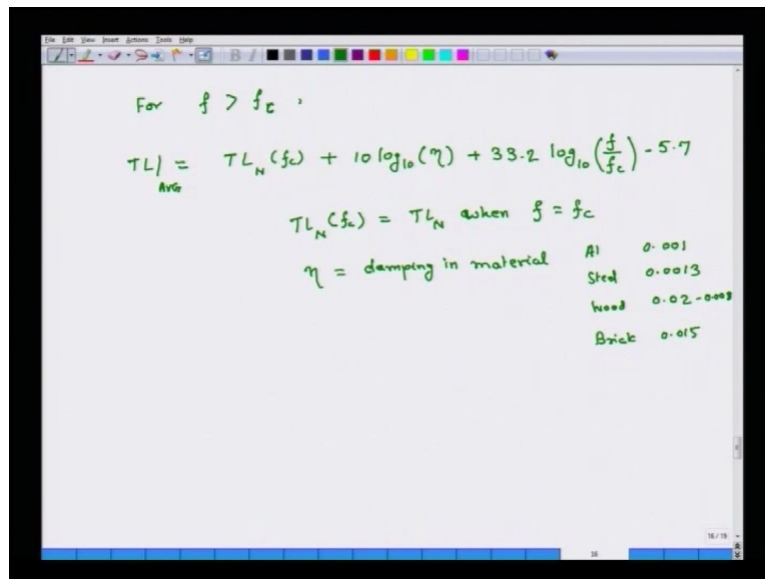 File Edit View Insert Actions Tools Help
For f > fc,
TL|AVG = TLN(fc) + 10 log10(η) + 33.2 log10(f/fc) - 5.7
TLN(fc) = TLN when f = fc
η = damping in material
Al 0.001
Steel 0.0013
Wood 0.02-0.008
Brick 0.015
16/19
16